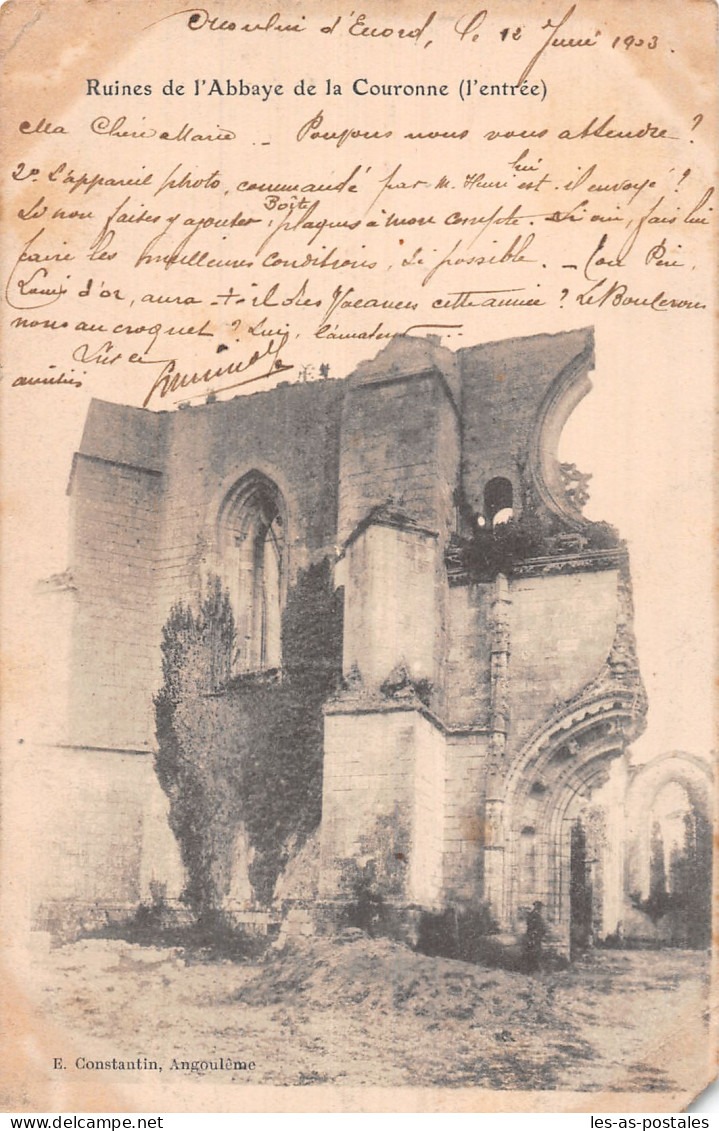 Moulin d'Enord, le 12 Juin 1903.
Ruines de l'Abbaye de la Couronne (l'entrée)
Ma Chère Marie _ Pouvons nous vous attendre ?
2° L'appareil photo, commandé par M. Henri lui est-il envoyé ?
Si non faites y ajouter Boîte plaques à mon compte. Si oui, fais lui
faire les meilleures conditions, si possible. _ Ton Père,
Louis d'or, aura-t-il des Vacances cette année ? Le Boulerons
nous au croquet ? Lui, l'amateur
amitiés
E. Constantin, Angoulême
les-as-postales